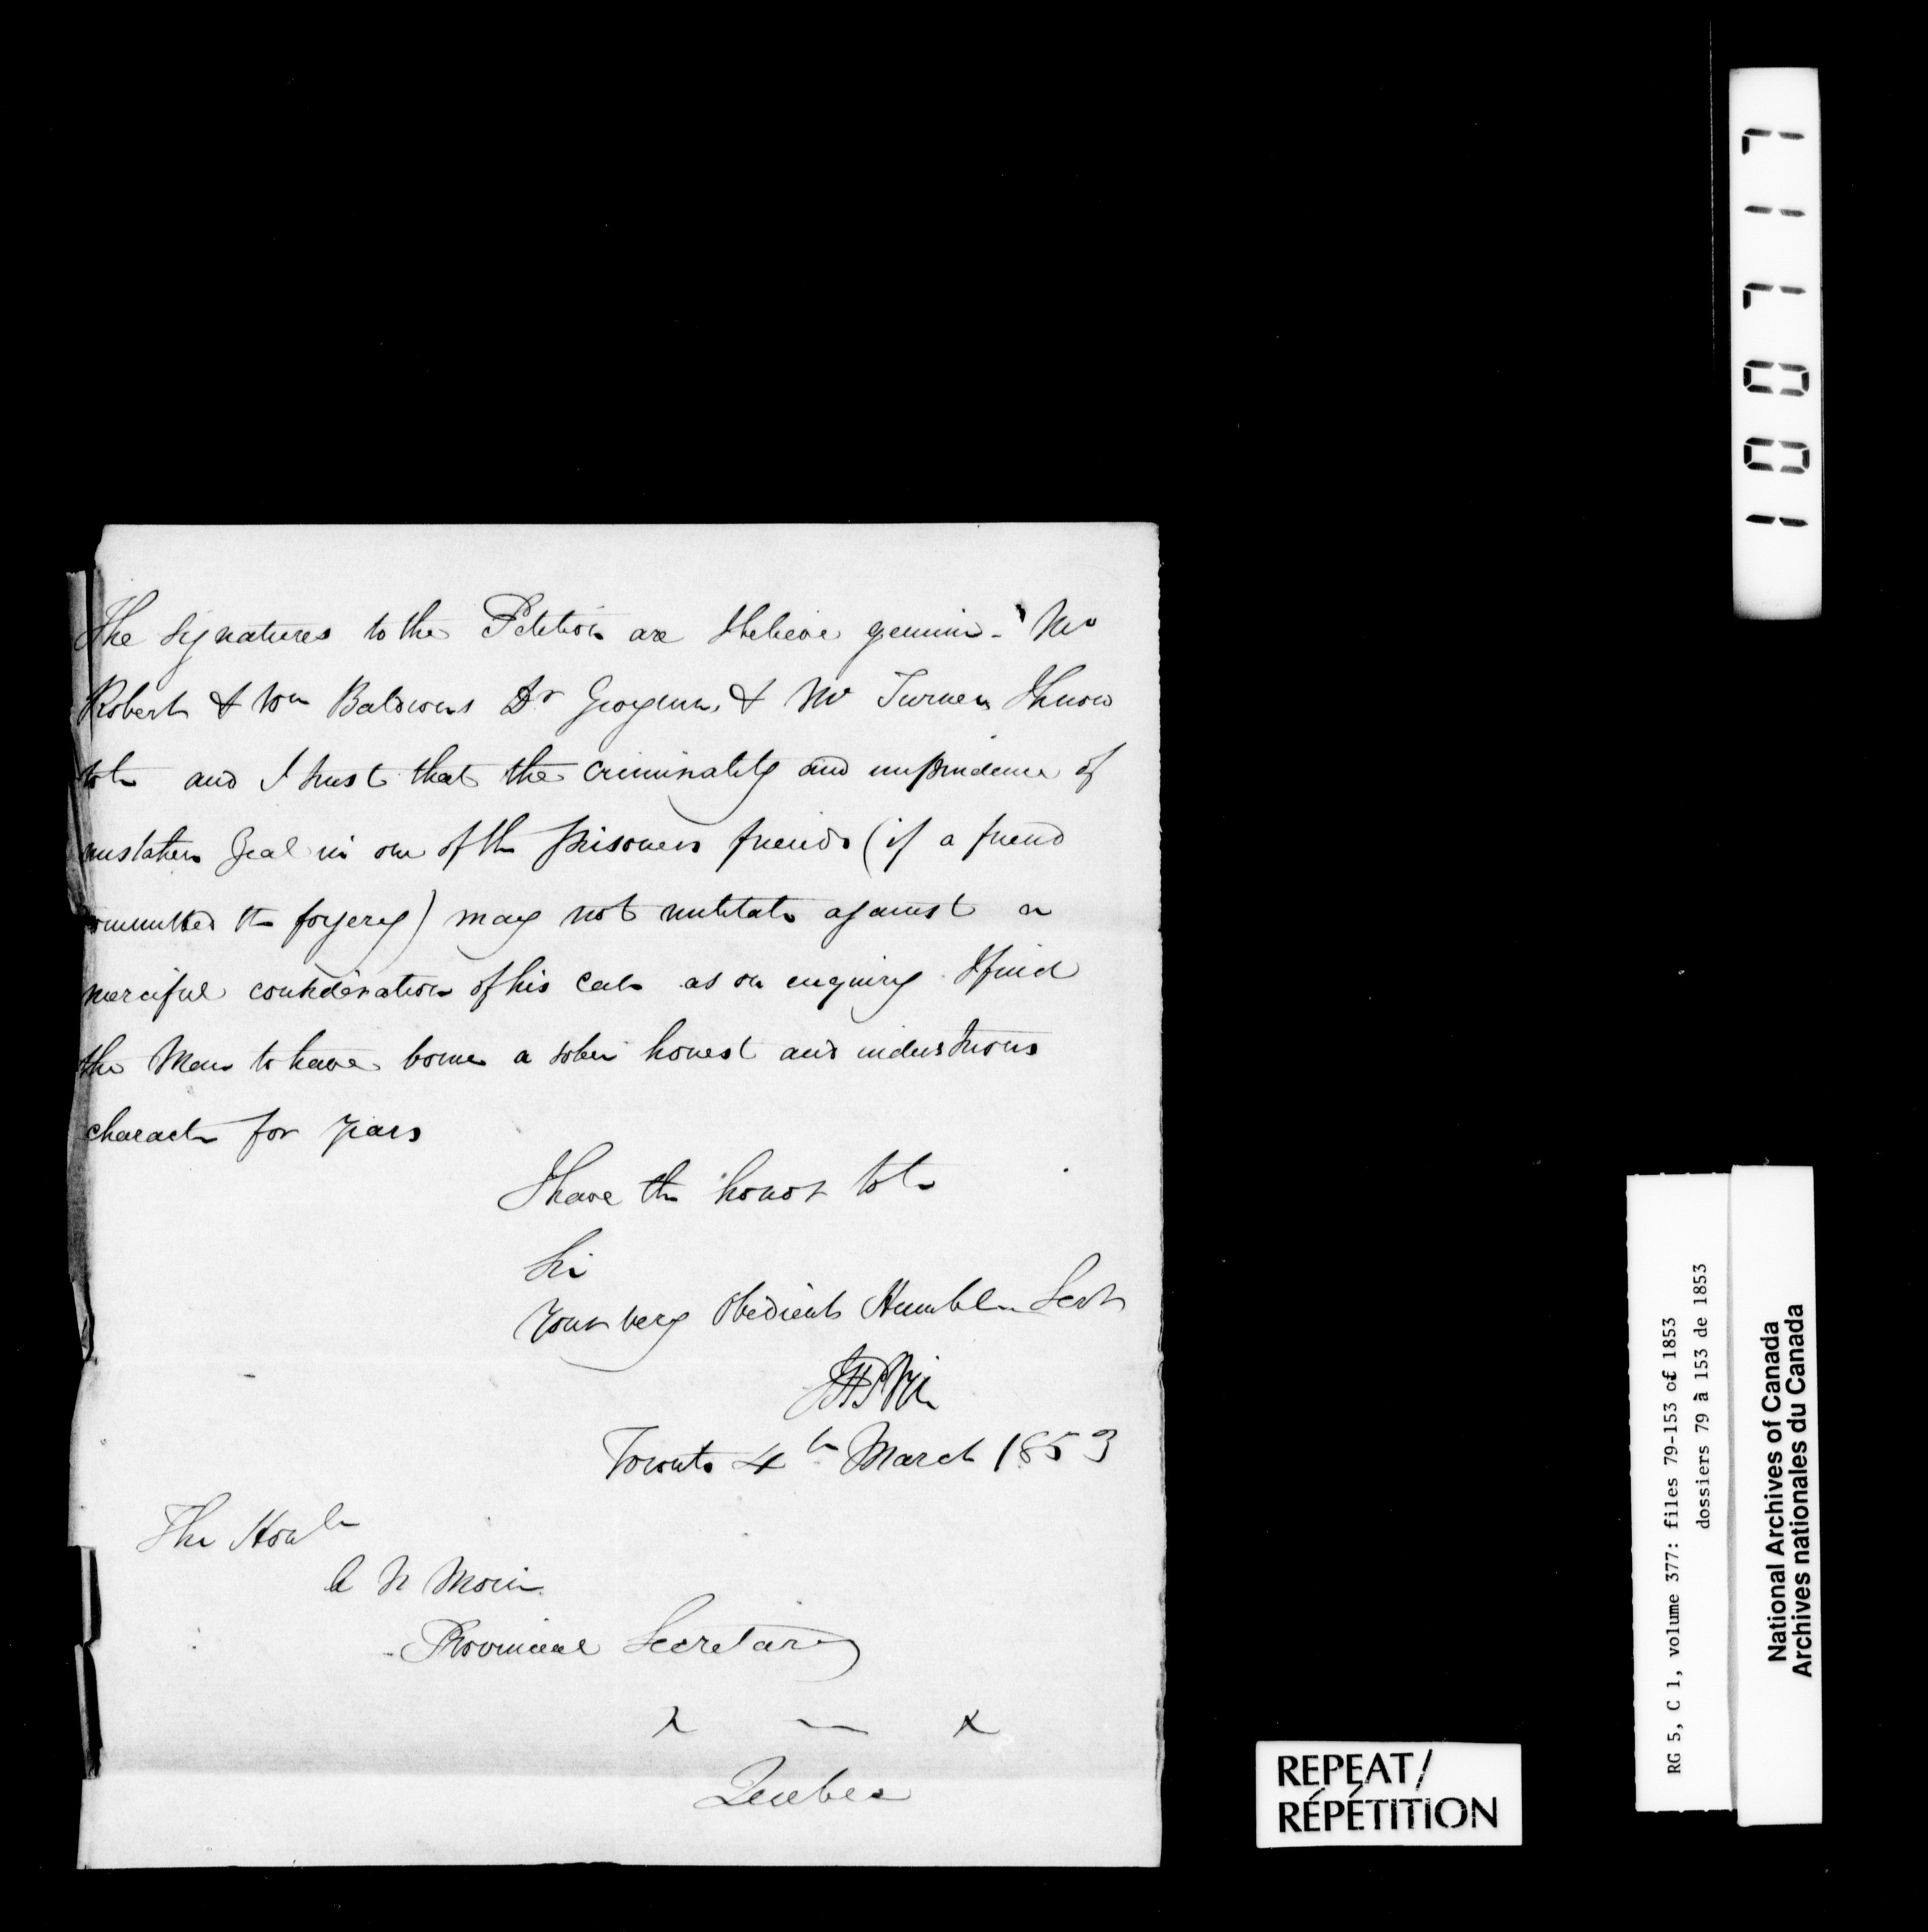 The Signatures to the Petition are I believe genuine - Mr
Robert & Wm Baldwins Dr & Mr Turner I know
to be and I trust that the criminality and imprudence of
mistaken Zeal in one of the prisoners friends (if a friend
committed the forgery) may not militate against a
merciful consideration of his case as on enquiry I find
the Man to have borne a sober honest and industrious
character for years
I have the honor to be
Sir
Your very Obedient Humble Servt
Toronto 4th March 1853
The Honble
A N Morin
Provincial Secretary
x — x
Quebec
10071717
RG 5, C 1, volume 377: files 79-153 of 1853
dossiers 79 à 153 de 1853
National Archives of Canada
Archives nationales du Canada
REPEAT/
RÉPÉTITION